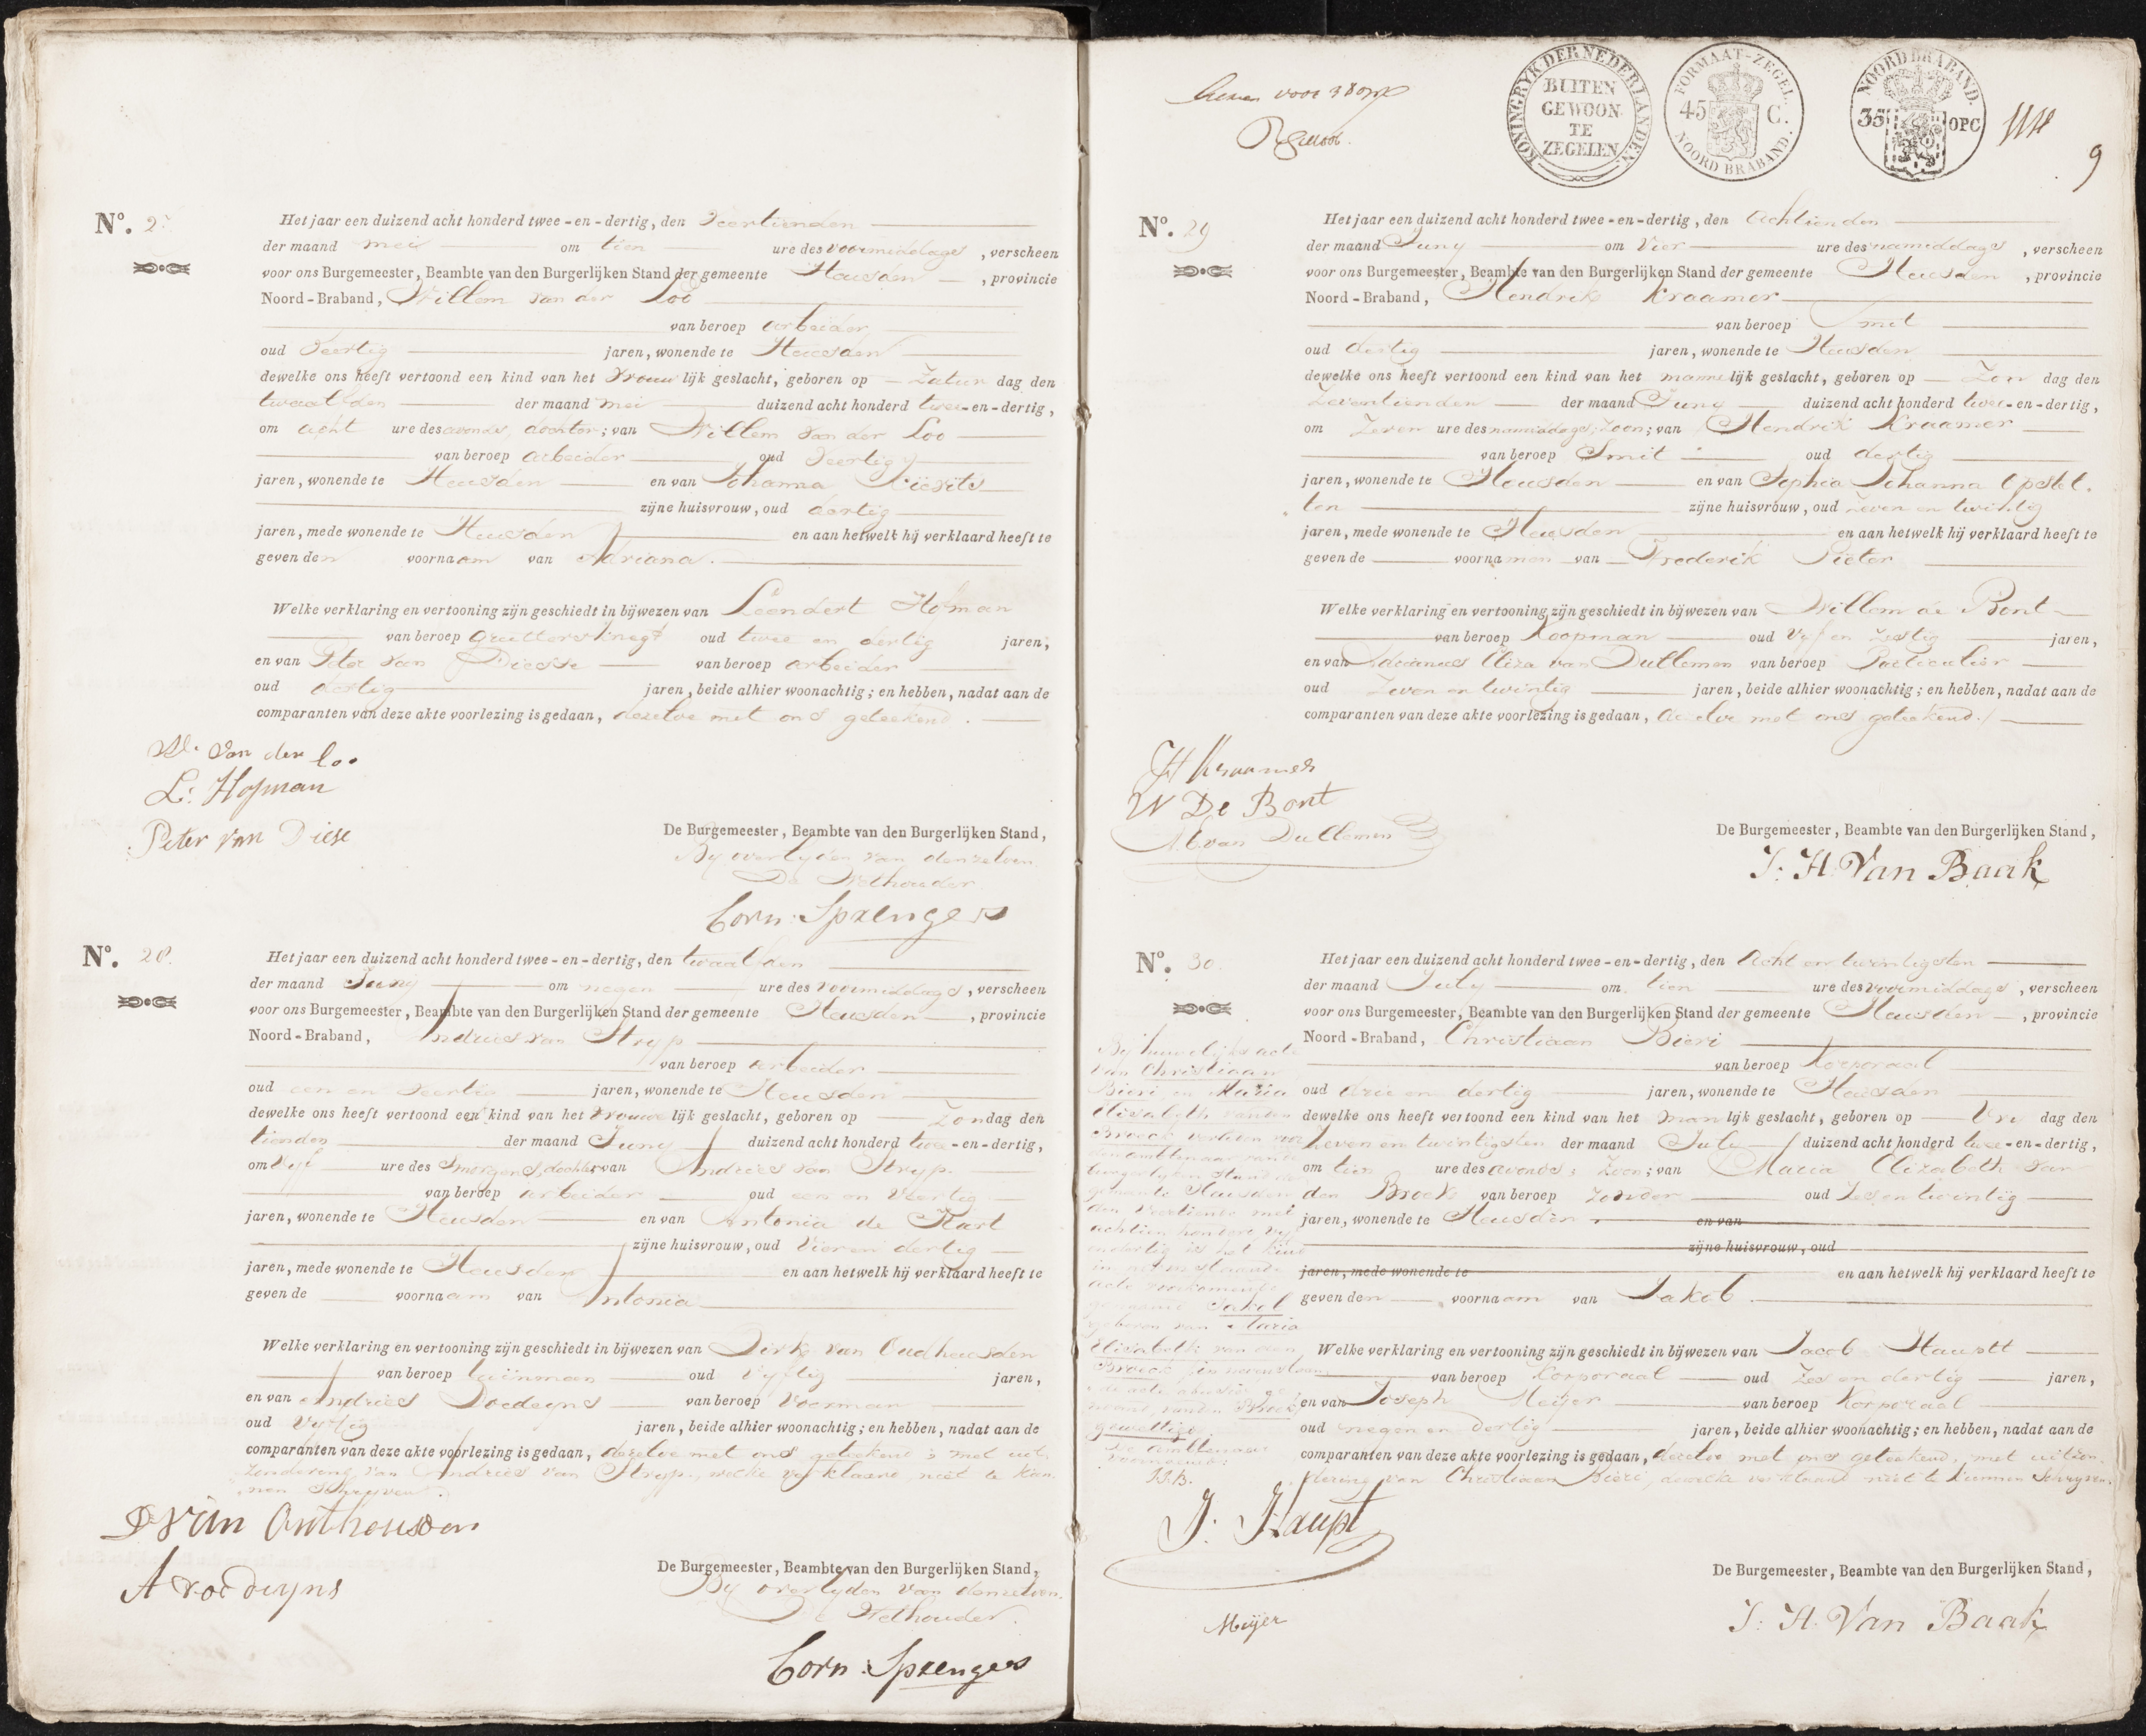 Nº. 2
Het jaar een duizend acht honderd twee-en-dertig, den Veertienden
der maand mei om tien ure des voormiddags, verscheen
voor ons Burgemeester, Beambte van den Burgerlijken Stand der gemeente Heusden, provincie
Noord-Braband, Willem van der Loo
van beroep arbeider
oud Veertig jaren, wonende te Heusden
dewelke ons heeft vertoond een kind van het Vrouwlijk geslacht, geboren op Zaturdag den
twaalfden der maand mei duizend acht honderd twee-en-dertig,
om acht ure des avonds, dochter; van Willem van der Loo
van beroep arbeider oud Veertig
jaren, wonende te Heusden en van Johanna
zijne huisvrouw, oud dertig
jaren, mede wonende te Heusden en aan hetwelk hij verklaard heeft te
geven den voornaam van Adriana.
Welke verklaring en vertooning zijn geschiedt in bijwezen van Leendert Hofman
van beroep oud twee en dertig jaren,
en van Peter van Diesse van beroep arbeider
oud dertig jaren, beide alhier woonachtig; en hebben, nadat aan de
comparanten van deze akte voorlezing is gedaan, dezelve met ons geteekend.
W. van der Loo
L: Hofman
Peter van Diese
De Burgemeester, Beambte van den Burgerlijken Stand,
By overlyden van denzelven
De Wethouder
Corn: Sprengers
Nº. 28.
Het jaar een duizend acht honderd twee-en-dertig, den twaalfden
der maand Juny om negen ure des voormiddags, verscheen
voor ons Burgemeester, Beambte van den Burgerlijken Stand der gemeente Heusden, provincie
Noord-Braband, Andries van Stryp
van beroep arbeider
oud een en veertig jaren, wonende te Heusden
dewelke ons heeft vertoond een kind van het Vrouwlijk geslacht, geboren op Zondag den
tienden der maand Juny duizend acht honderd twee-en-dertig,
om Vyf ure des smorgens, dochter van Andries van Stryp
van beroep arbeider oud een en Veertig
jaren, wonende te Heusden en van Antonia de Hart
zijne huisvrouw, oud Vier en dertig
jaren, mede wonende te Heusden en aan hetwelk hij verklaard heeft te
geven de voornaam van Antonia
Welke verklaring en vertooning zijn geschiedt in bijwezen van Dirk van Oudheusden
van beroep tuinman oud Vyftig jaren,
en van Andries Roedeyns van beroep Voerman
oud Vyftig jaren, beide alhier woonachtig; en hebben, nadat aan de
comparanten van deze akte voorlezing is gedaan, dezelve met ons geteekend, met uit
zondering van Andries van Stryp, welke verklaard niet te kun
nen Schryven.
D van Outheusden
A roedeyns
De Burgemeester, Beambte van den Burgerlijken Stand,
By overlyden van denzelven
De Wethouder
Corn: Sprengers
KONINGRYK DER NEDERLANDEN.
BUITEN
GEWOON
TE
ZEGELEN
FORMAAT-ZEGEL.
45 C.
NOORD BRABAND.
NOORD BRABAND.
35 OPC
9
Nº. 29
Het jaar een duizend acht honderd twee-en-dertig, den Achtienden
der maand Juny om Vier ure des namiddags, verscheen
voor ons Burgemeester, Beambte van den Burgerlijken Stand der gemeente Heusden, provincie
Noord-Braband, Hendrik Kraamer
van beroep Smit
oud dertig jaren, wonende te Heusden
dewelke ons heeft vertoond een kind van het mannelijk geslacht, geboren op Zondag den
Zeventienden der maand Juny duizend acht honderd twee-en-dertig,
om Zeven ure des namiddags, Zoon; van Hendrik Kraamer
van beroep Smit oud dertig
jaren, wonende te Heusden en van Sophia Johanna Opstel
ten zijne huisvrouw, oud Zeven en twintig
jaren, mede wonende te Heusden en aan hetwelk hij verklaard heeft te
geven de voornamen van Frederik Pieter
Welke verklaring en vertooning zijn geschiedt in bijwezen van Willem de Bont
van beroep Koopman oud Vyf en Zestig jaren,
en van Adrianus Eliza van Dullemen van beroep Particulier
oud Zeven en twintig jaren, beide alhier woonachtig; en hebben, nadat aan de
comparanten van deze akte voorlezing is gedaan, dezelve met ons geteekend.
H Kraamer
W De Bont
A E van Dullemen
De Burgemeester, Beambte van den Burgerlijken Stand,
J: H. Van Baak
Nº. 30.
Het jaar een duizend acht honderd twee-en-dertig, den Acht en twintigsten
der maand July om tien ure des voormiddags, verscheen
voor ons Burgemeester, Beambte van den Burgerlijken Stand der gemeente Heusden, provincie
Noord-Braband, Christiaan Bieri
van beroep Korporaal
oud drie en dertig jaren, wonende te Heusden
dewelke ons heeft vertoond een kind van het manlijk geslacht, geboren op Vrydag den
Zeven en twintigsten der maand July duizend acht honderd twee-en-dertig,
om tien ure des avonds; Zoon; van Maria Elizabeth van
den Broek van beroep Zonder oud Zes en twintig
jaren, wonende te Heusden en van
zijne huisvrouw, oud
jaren, mede wonende te en aan hetwelk hij verklaard heeft te
geven den voornaam van Jakob.
Welke verklaring en vertooning zijn geschiedt in bijwezen van Jacob Hauptt
van beroep Korporaal oud Zes en dertig jaren,
en van Joseph Meijer van beroep Korporaal
oud negen en dertig jaren, beide alhier woonachtig; en hebben, nadat aan de
comparanten van deze akte voorlezing is gedaan, dezelve met ons geteekend, met uitzon
dering van Christiaan Bieri, dewelke verklaard niet te kunnen Schryven.
By huwelijks acte
van Christiaan
Bieri en Maria
Elisabeth van den
Broeck verleden voor
den ambtenaar van den
burgerlyken Stand der
gemeente Heusden
den Veertiende mei
achtien honderd vyf
en dertig is het kind
in nevenstaande
acte voorkomende
genaamd Jakob
geboren van Maria
Elisabeth van den
Broeck, in nevenstaan
de acte abusive ge
noemd van den Broek
gewettigd.
De ambtenaar
voornoemd:
J.J.B.
J: Haupt
Meijer
De Burgemeester, Beambte van den Burgerlijken Stand,
J: H. Van Baak